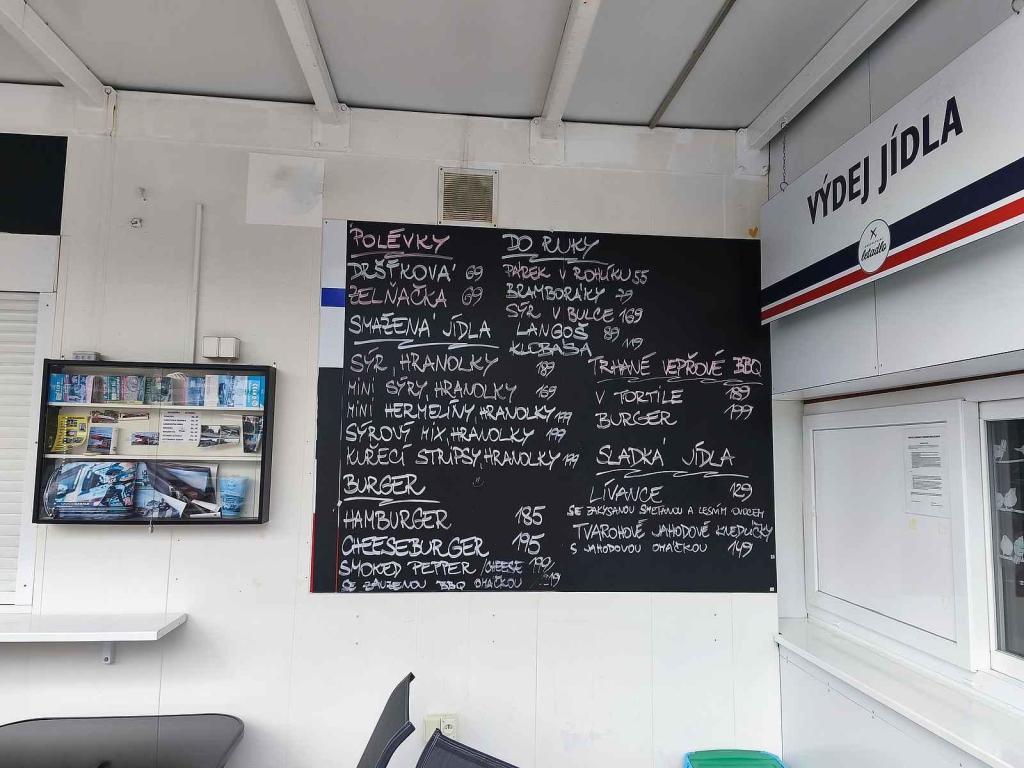 POLÉVKY
DRŠŤKOVÁ 69
ZELŇAČKA 69
SMAŽENÁ JÍDLA
SÝR, HRANOLKY 189
MINI SÝRY, HRANOLKY 169
MINI HERMELÍNY, HRANOLKY 199
SÝROVÝ MIX, HRANOLKY 199
KUŘECÍ STRIPSY, HRANOLKY 199
BURGER
HAMBURGER 185
CHEESEBURGER 195
SMOKED PEPPER /CHEESE 199/
SE ZAUZENOU BBQ OMÁČKOU 219
DO RUKY
PÁREK V ROHLÍKU 55
BRAMBORÁKY 79
SÝR V BULCE 169
LANGOŠ 89
KLOBÁSA 119
TRHANÉ VEPŘOVÉ BBQ
V TORTILE 189
BURGER 199
SLADKÁ JÍDLA
LÍVANCE 129
SE ZAKYSANOU SMETANOU A LESNÍM OVOCEM
TVAROHOVÉ JAHODOVÉ KNEDLÍČKY
S JAHODOVOU OMÁČKOU 149
VÝDEJ JÍDLA
letadlo